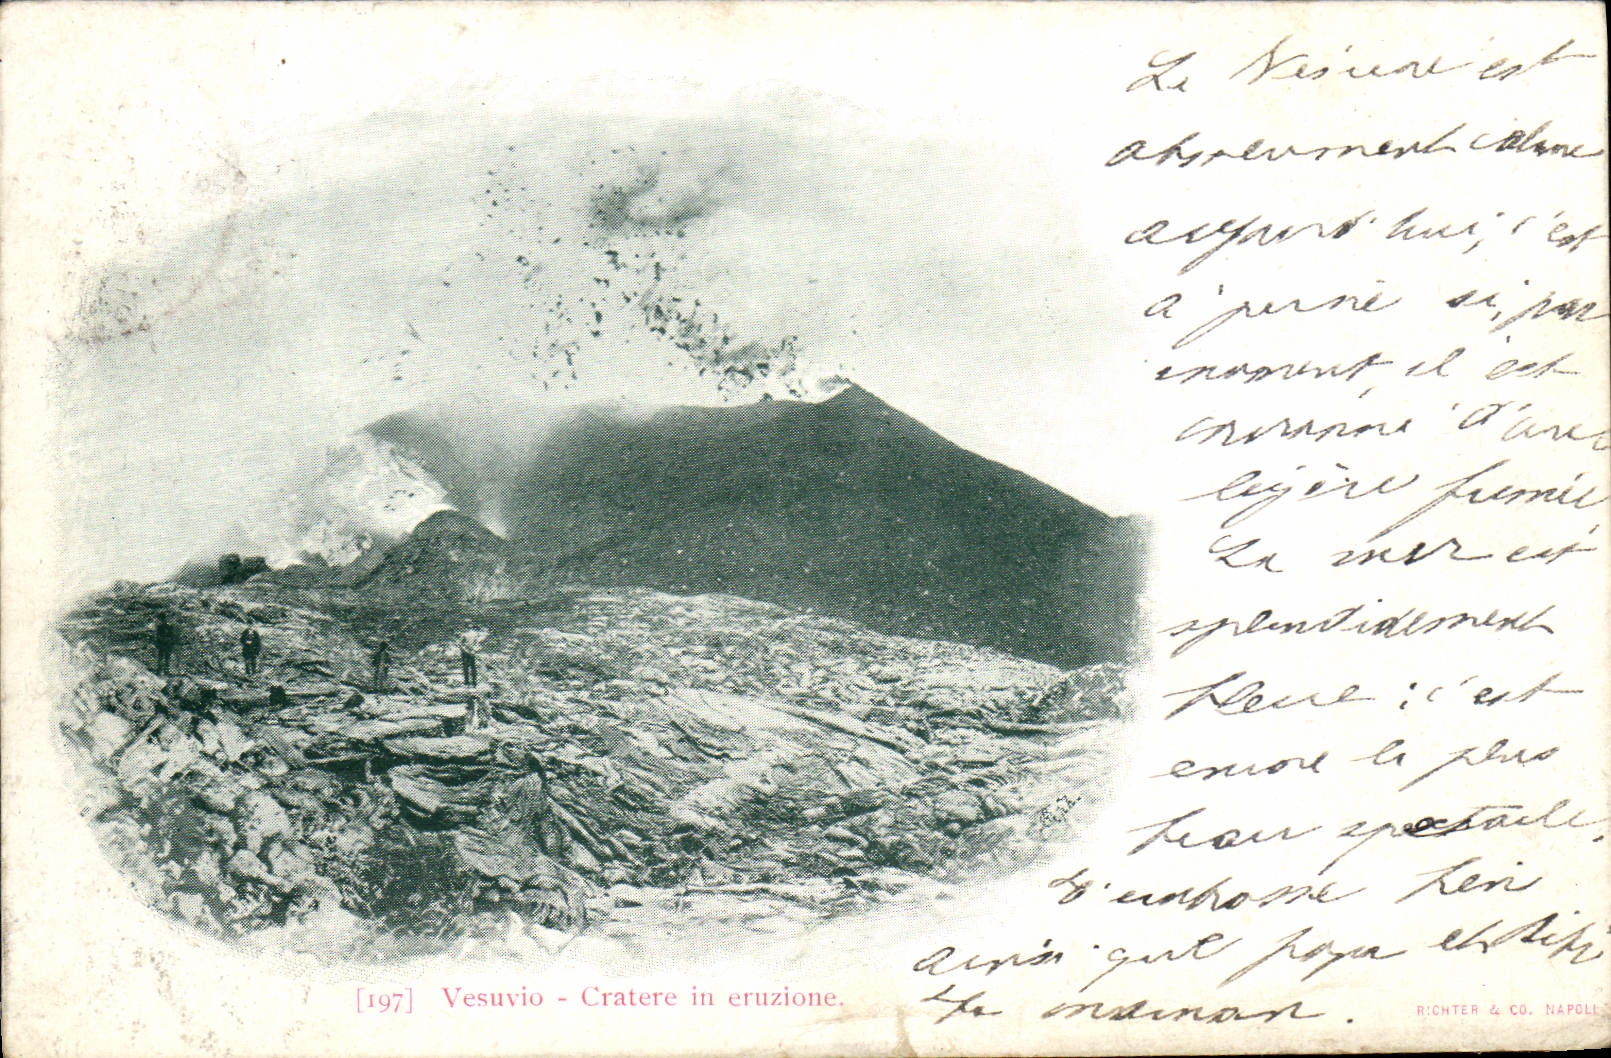 Le Vésuve est
absolument calme
aujourd'hui, c'est
à peine si, par
moment, il est
couronné d'une
légère fumée
La mer est
splendidement
bleue : c'est
encore le plus
beau spectacle.
J'embrasse bien
ainsi que papa et
maman.
[197] Vesuvio - Cratere in eruzione.
RICHTER & CO. NAPOLI